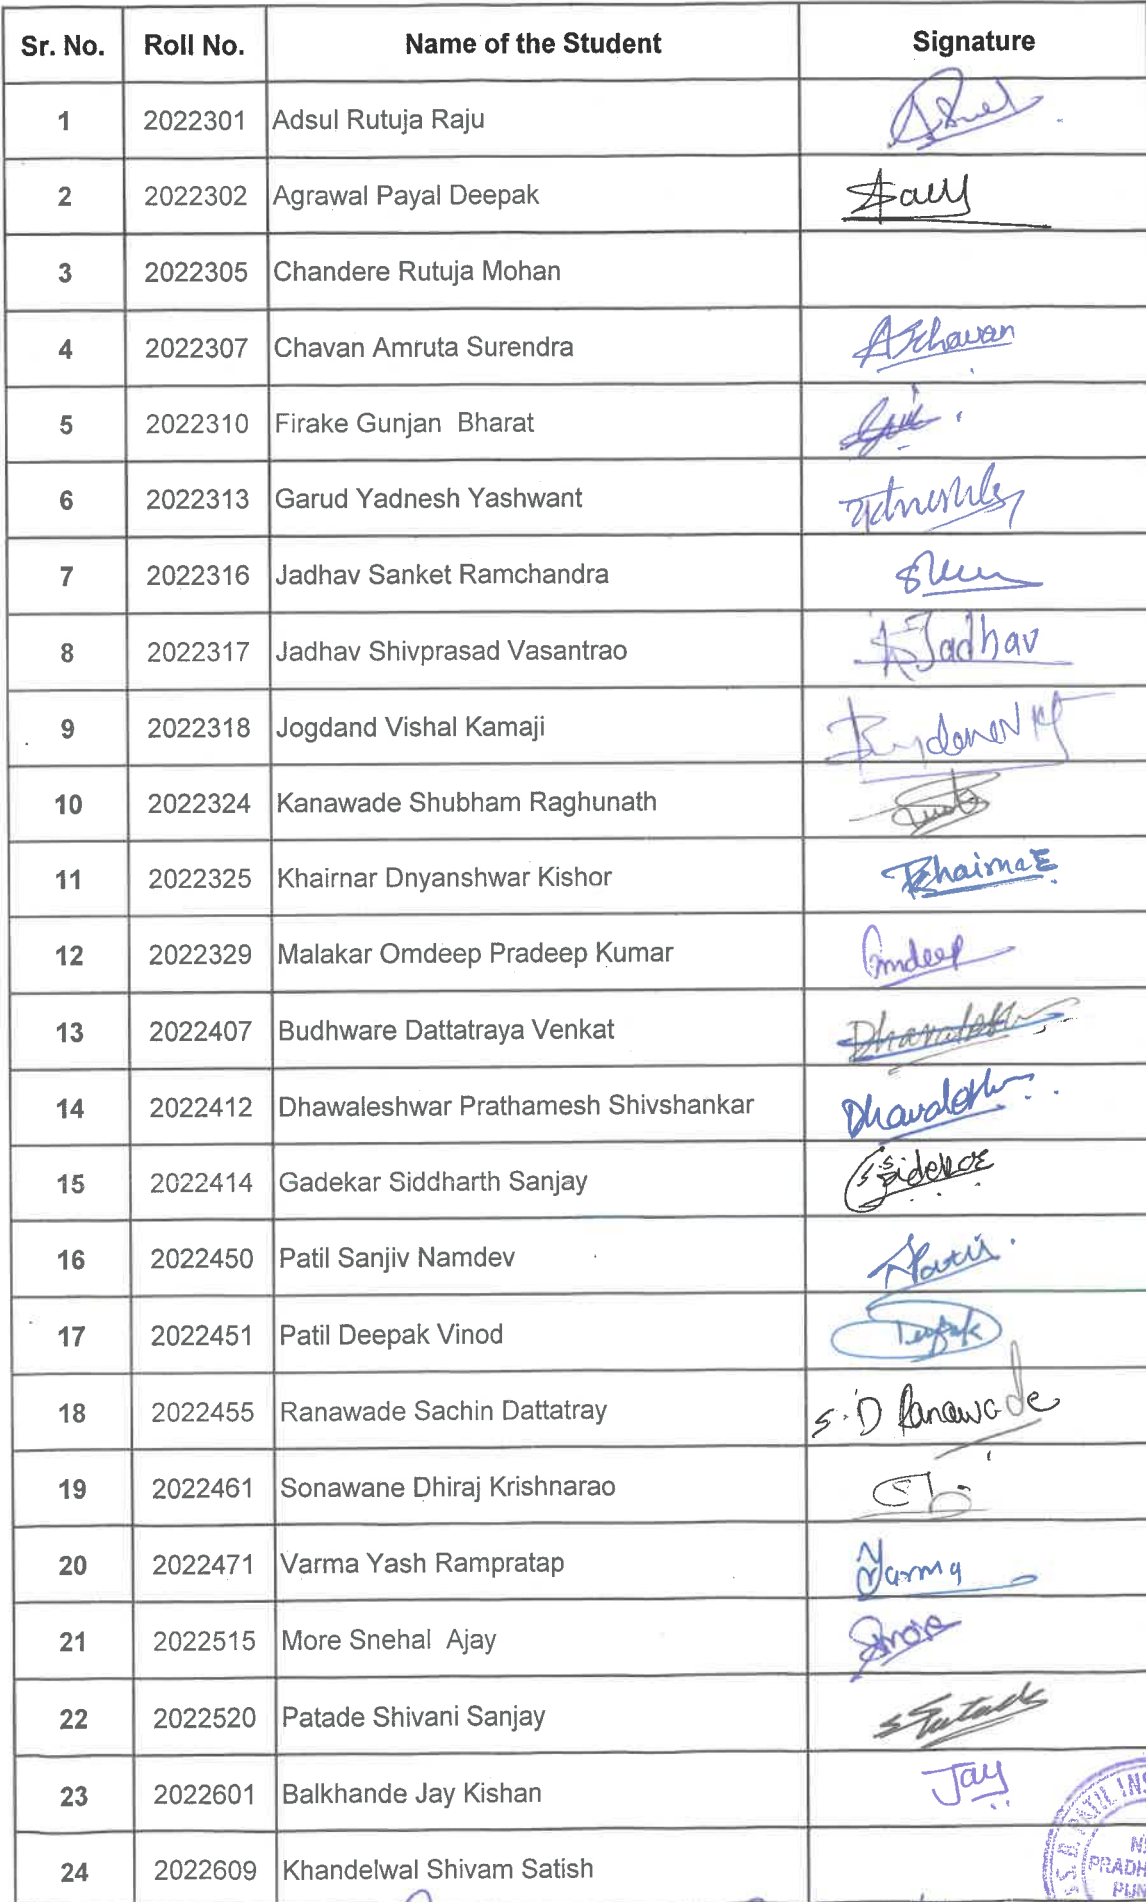 Sr. No. Roll No. Name of the Student Signature
1 2022301 Adsul Rutuja Raju
2 2022302 Agrawal Payal Deepak
3 2022305 Chandere Rutuja Mohan
4 2022307 Chavan Amruta Surendra AChavan
5 2022310 Firake Gunjan Bharat
6 2022313 Garud Yadnesh Yashwant
7 2022316 Jadhav Sanket Ramchandra
8 2022317 Jadhav Shivprasad Vasantrao Jadhav
9 2022318 Jogdand Vishal Kamaji
10 2022324 Kanawade Shubham Raghunath
11 2022325 Khairnar Dnyanshwar Kishor Khairnar
12 2022329 Malakar Omdeep Pradeep Kumar Omdeep
13 2022407 Budhware Dattatraya Venkat
14 2022412 Dhawaleshwar Prathamesh Shivshankar
15 2022414 Gadekar Siddharth Sanjay
16 2022450 Patil Sanjiv Namdev
17 2022451 Patil Deepak Vinod Deepak
18 2022455 Ranawade Sachin Dattatray S.D Ranawade
19 2022461 Sonawane Dhiraj Krishnarao
20 2022471 Varma Yash Rampratap Varma
21 2022515 More Snehal Ajay Smore
22 2022520 Patade Shivani Sanjay SPatade
23 2022601 Balkhande Jay Kishan Jay
24 2022609 Khandelwal Shivam Satish